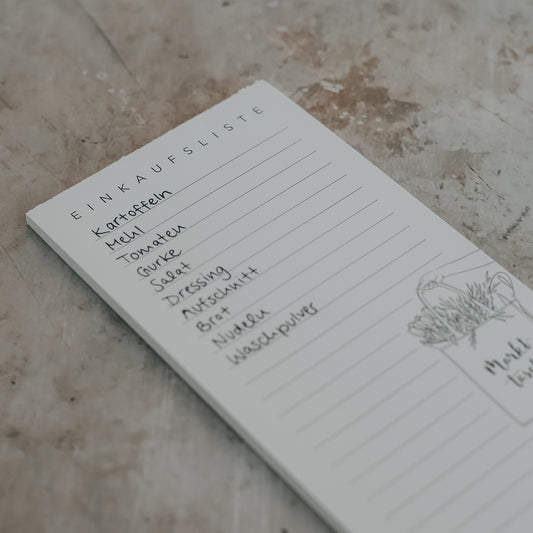 EINKAUFSLISTE
Kartoffeln
Mehl
Tomaten
Gurke
Salat
Dressing
Aufschnitt
Brot
Nudeln
Waschpulver
Markt